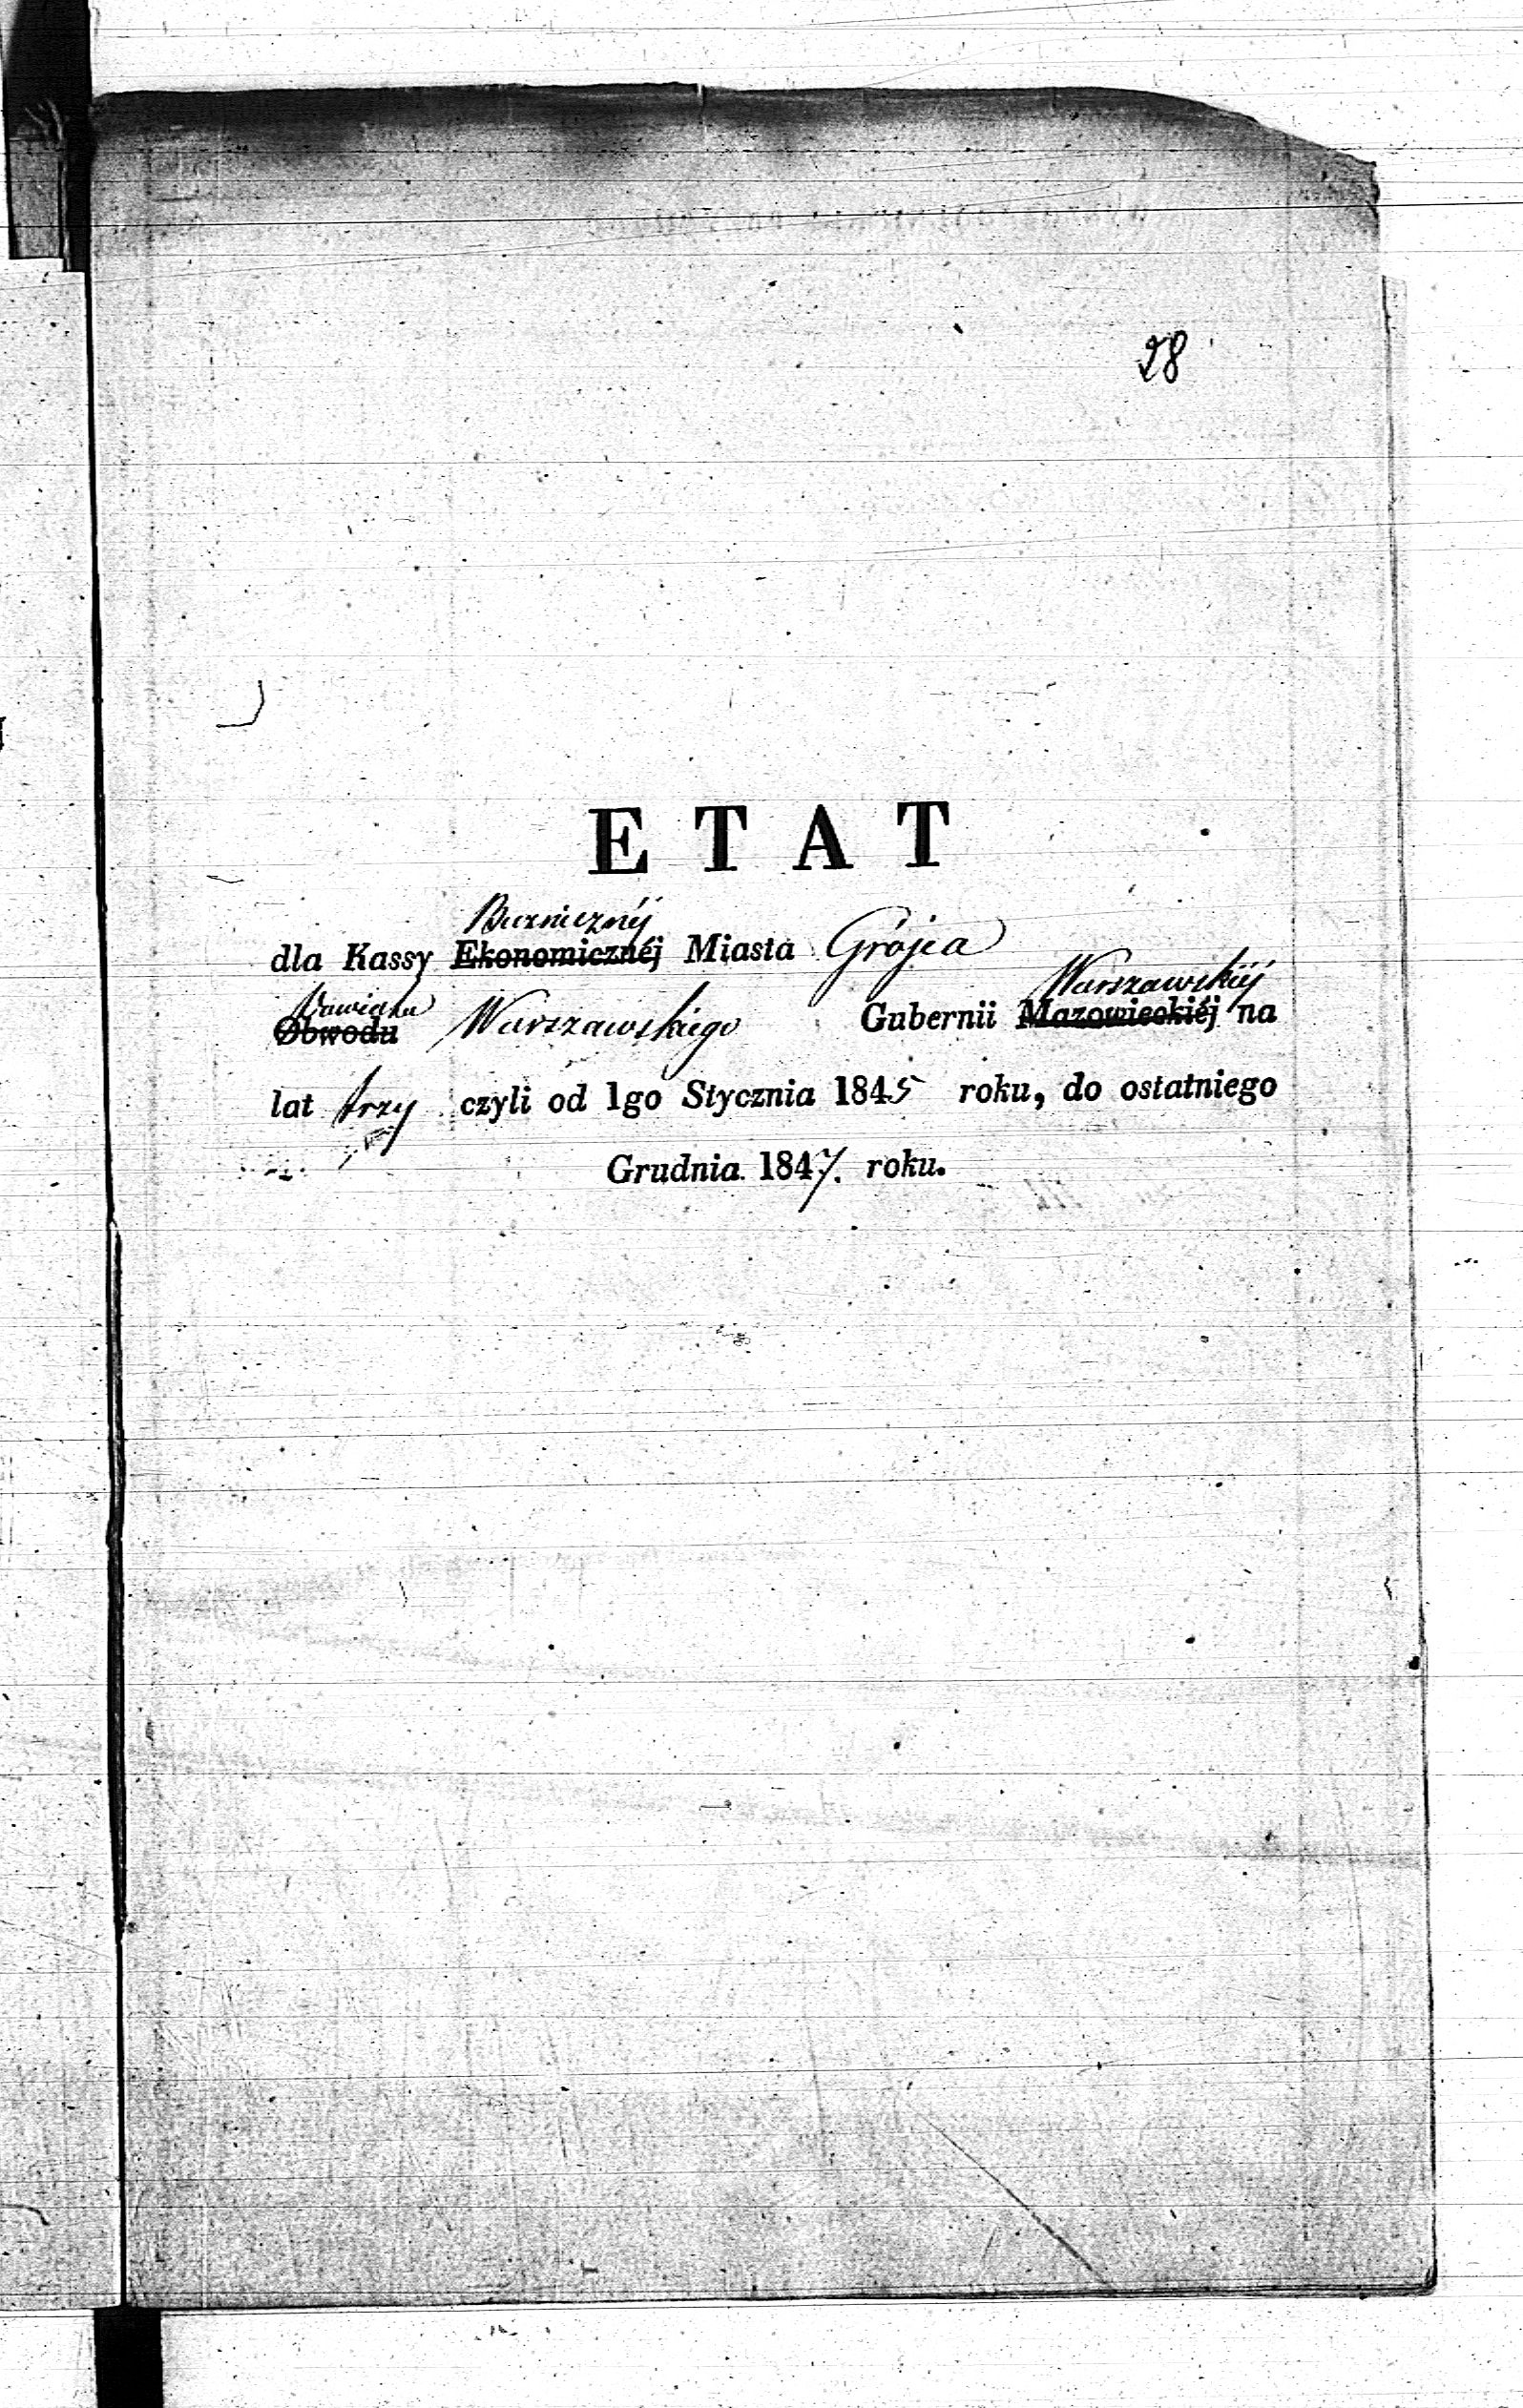 28
ETAT
Bużnicznéj
dla Kassy Ekonomicznéj Miasta Grójca
Powiatu Warszawskiéj
Obwodu Warszawskiego Gubernii Mazowieckiéj na
lat trzy czyli od 1go Stycznia 1845 roku, do ostatniego
Grudnia 1847. roku.